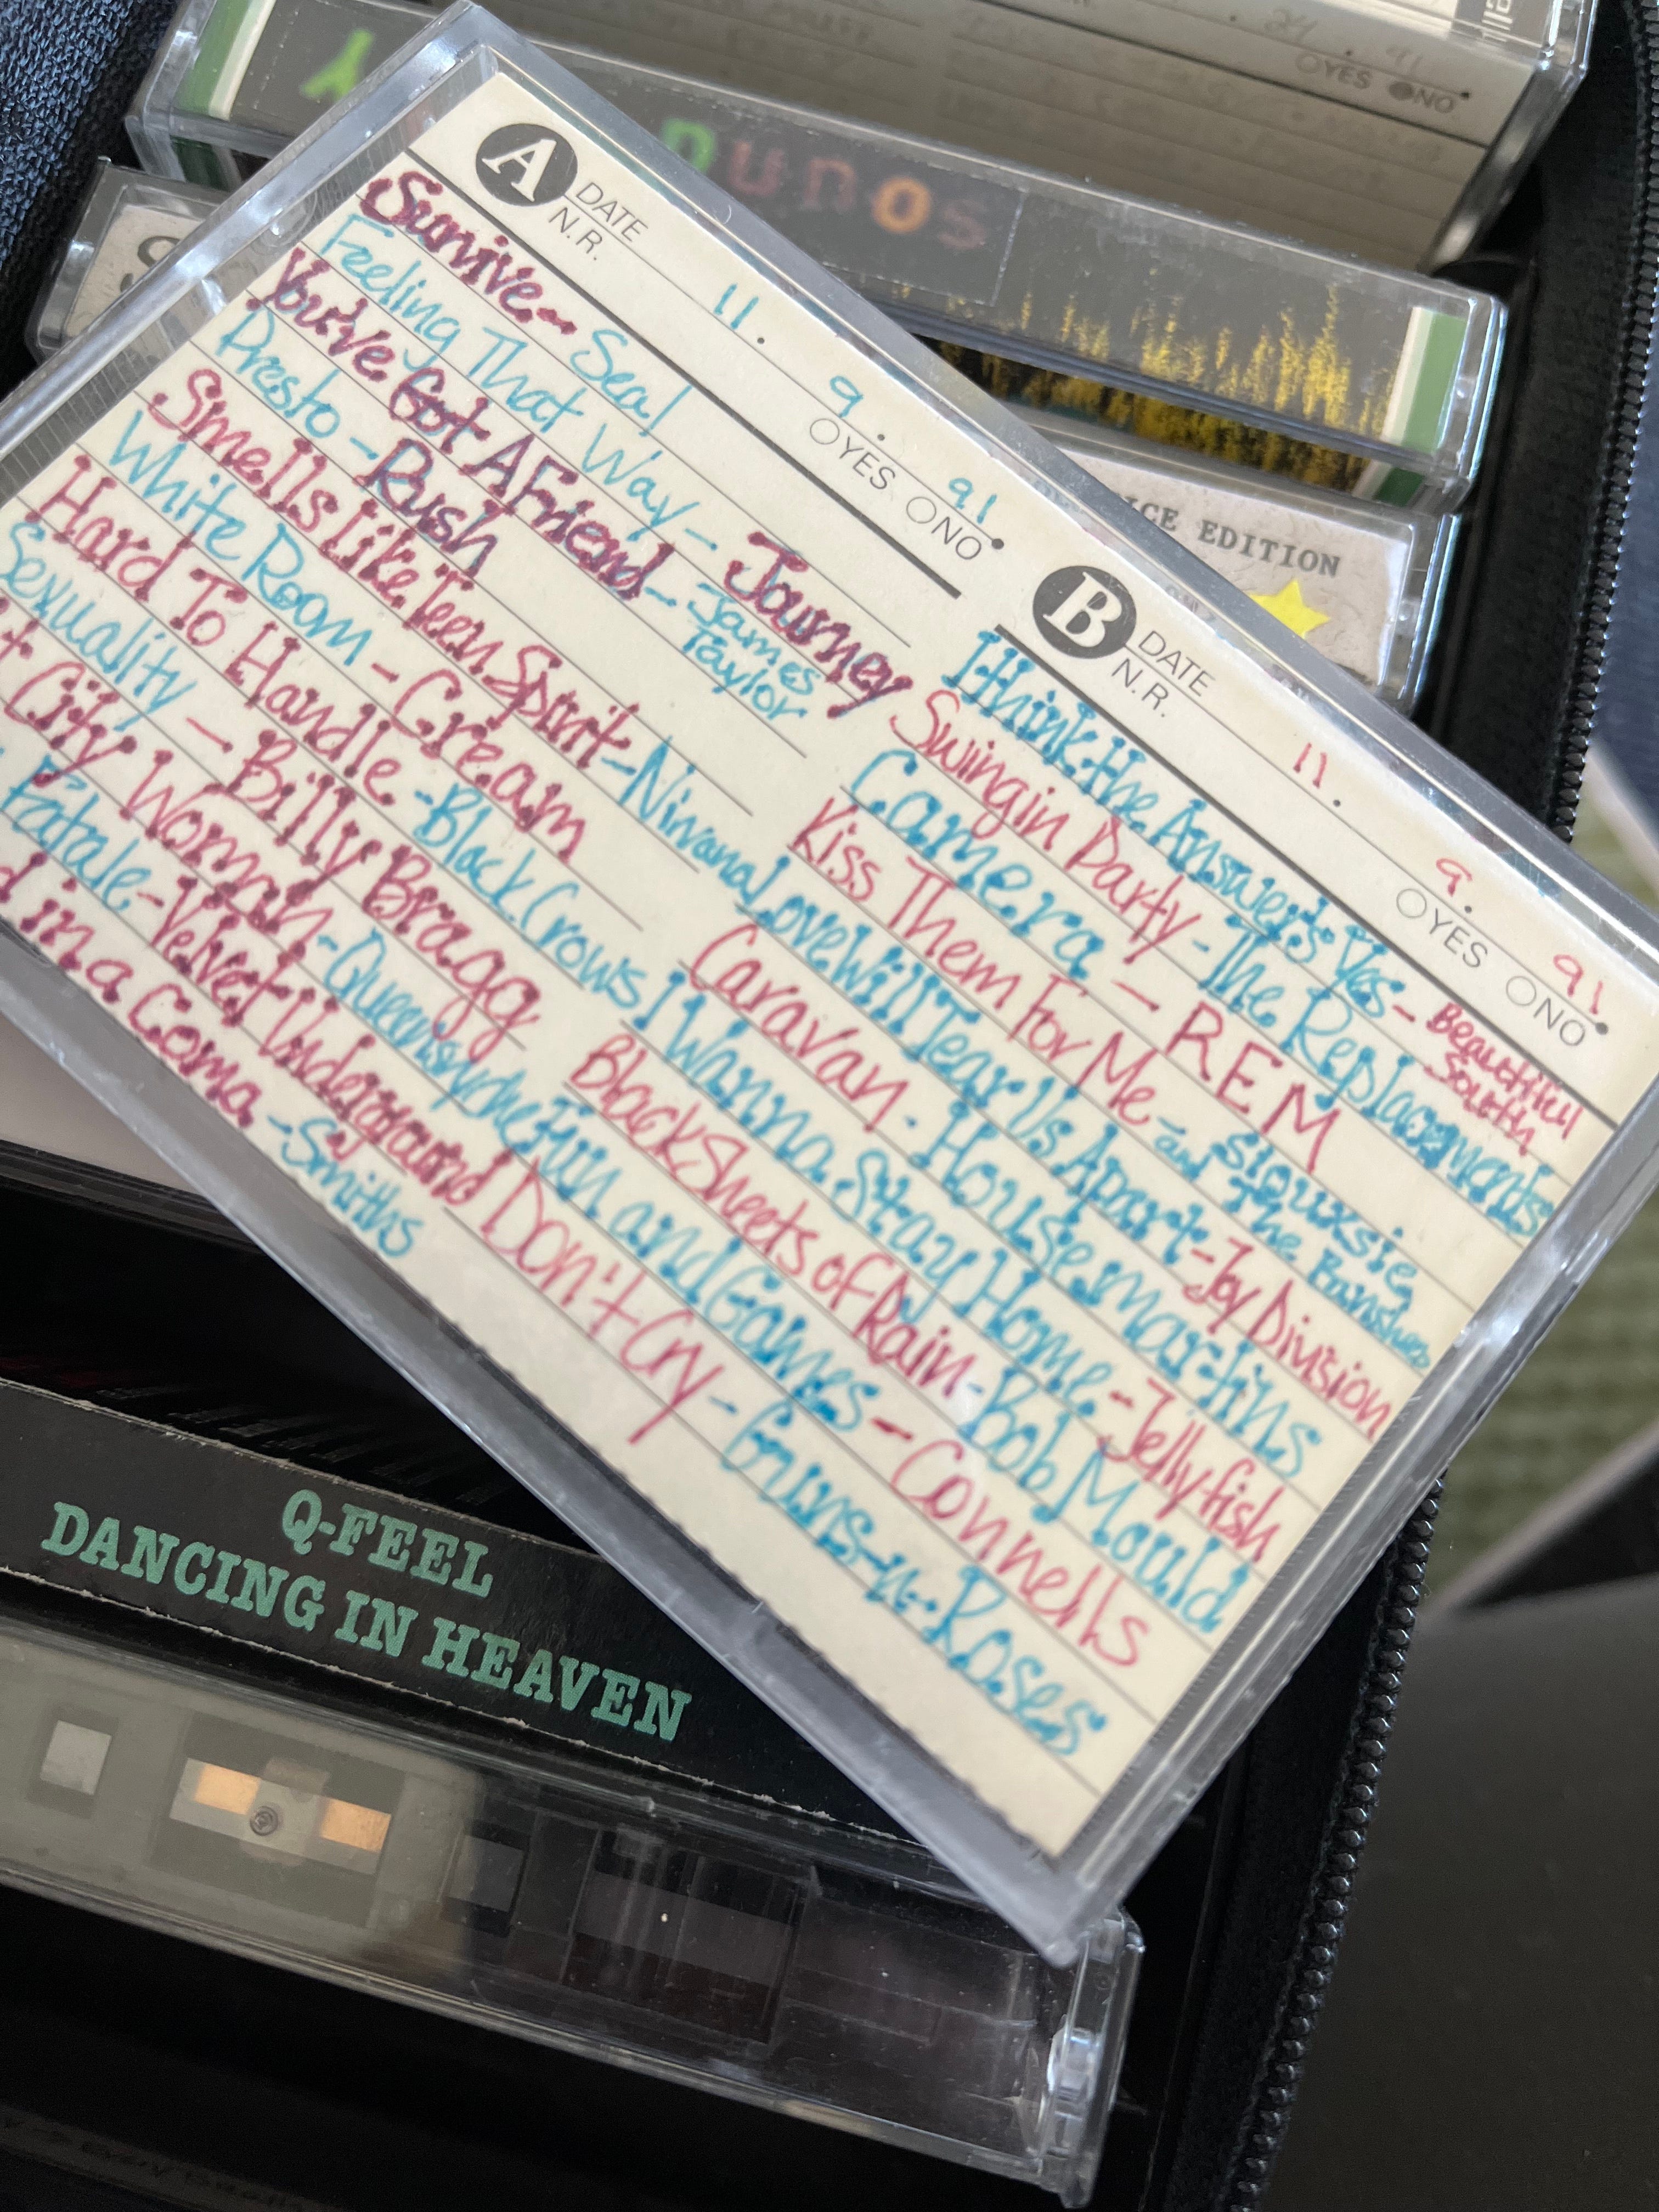 24. 91.
OYES ONO
unos
ICE EDITION
A DATE
N.R.
11. 9. 91.
OYES ONO
Survive - Seal
Feeling That Way - Journey
You've Got A Friend - James Taylor
Presto - Rush
Smells Like Teen Spirit - Nirvana
White Room - Cream
Hard To Handle - Black Crows
Sexuality - Billy Bragg
t City Woman - Queensryche
Fatale - Velvet Underground
in a Coma - Smiths
B DATE
N.R.
11. 9. 91
OYES ONO
I think the Answer's Yes - Beautiful South
Swingin Party - The Replacements
Camera - REM
Kiss Them For Me - Siouxsie and The Banshees
Love Will Tear Us Apart - Joy Division
Caravan - Housemartins
I Wanna Stay Home - Jellyfish
Black Sheets of Rain - Bob Mould
Fun and Games - Connells
Don't Cry - Guns-n-Roses
Q-FEEL
DANCING IN HEAVEN